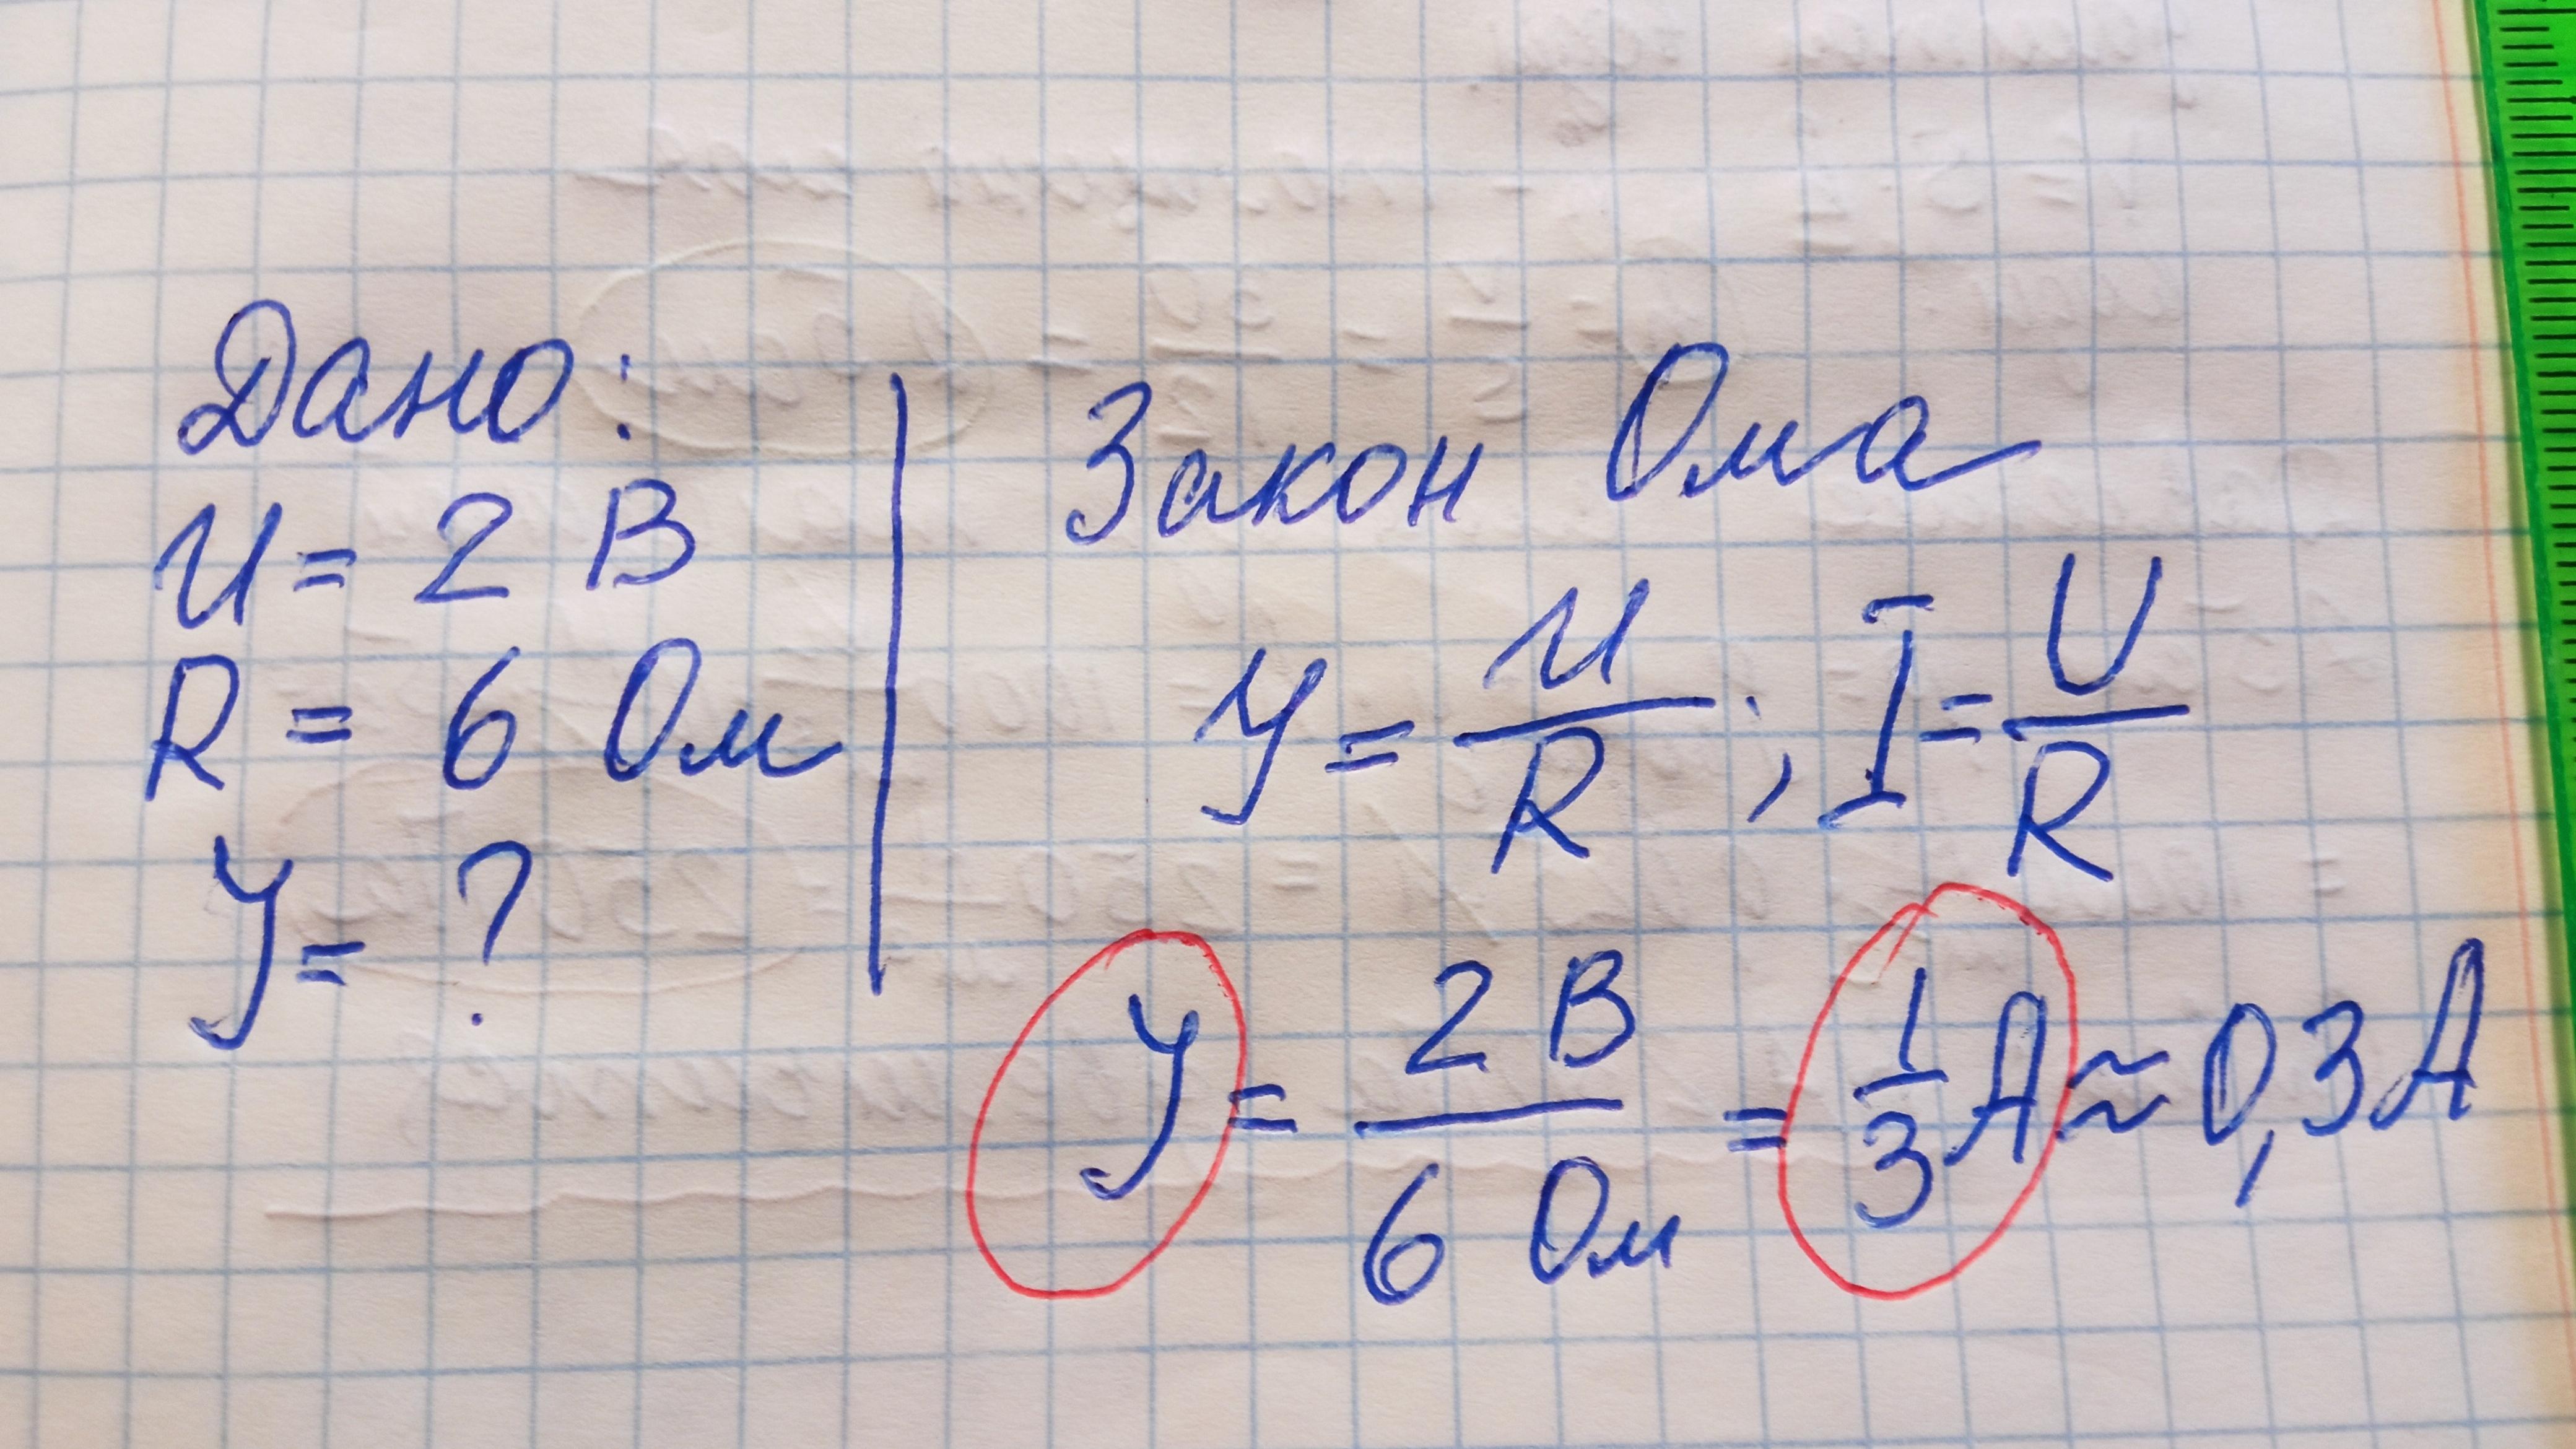 Дано:
U = 2 В
R = 6 Ом
У = ?
Закон Ома
У = U/R ; I = U/R
У = 2 В/6 Ом = 1/3 А ≈ 0,3 А